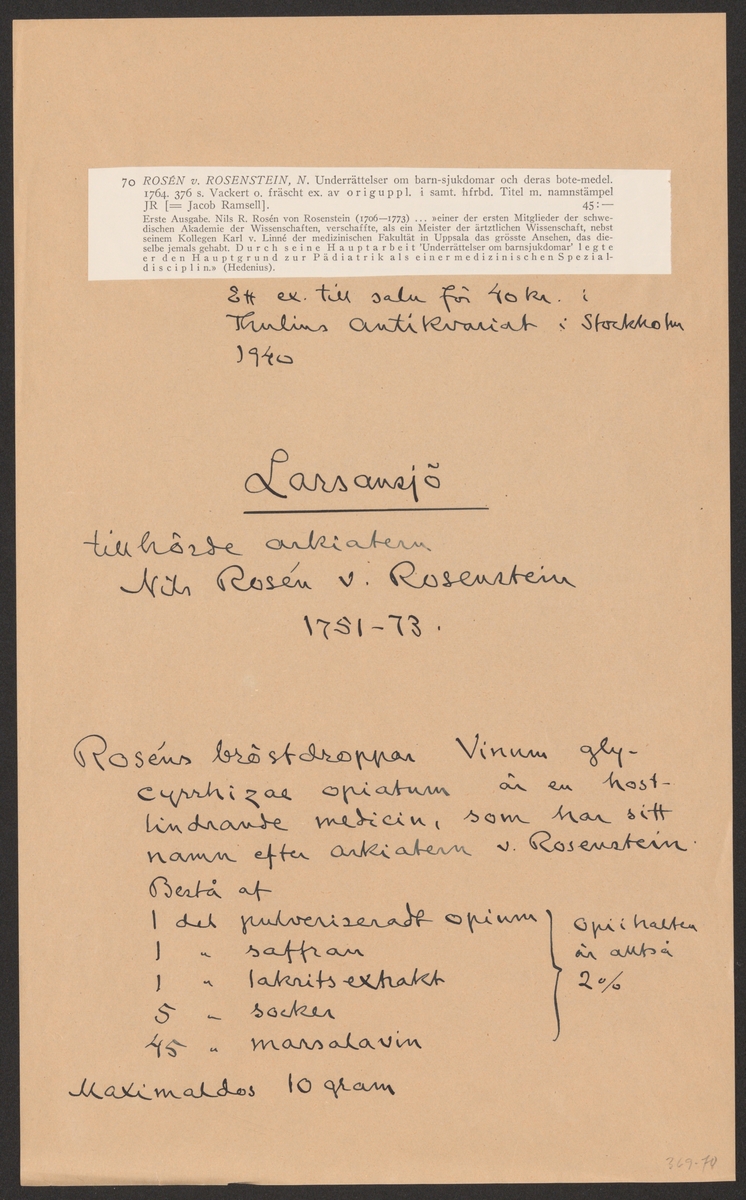 70 ROSÉN v. ROSENSTEIN, N. Underrättelser om barn-sjukdomar och deras bote-medel.
1764. 376 s. Vackert o. fräscht ex. av origuppl. i samt. hfrbd. Titel m. namnstämpel
JR [= Jacob Ramsell]. 45:—
Erste Ausgabe. Nils R. Rosén von Rosenstein (1706—1773) ... »einer der ersten Mitglieder der schwe-
dischen Akademie der Wissenschaften, verschaffte, als ein Meister der ärtztlichen Wissenschaft, nebst
seinem Kollegen Karl v. Linné der medizinischen Fakultät in Uppsala das grösste Ansehen, das die-
selbe jemals gehabt. Durch seine Hauptarbeit 'Underrättelser om barnsjukdomar' legte
er den Hauptgrund zur Pädiatrik als einer medizinischen Spezial-
disciplin.» (Hedenius).
Ett ex. till salu för 40 kr. i
Thulins Antikvariat i Stockholm
1940
Larsansjö
tillhörde arkiatern
Nils Rosén v. Rosenstein
1751-73.
Roséns bröstdroppar Vinum gly-
cyrrhizae opiatum är en host-
lindrande medicin, som har sitt
namn efter arkiatern v. Rosenstein.
Bestå af
1 del pulveriseradt opium
1 " saffran
1 " lakritsextrakt
5 " socker
45 " marsalavin
opiihalten
är alltså
2%
Maximaldos 10 gram
369-70